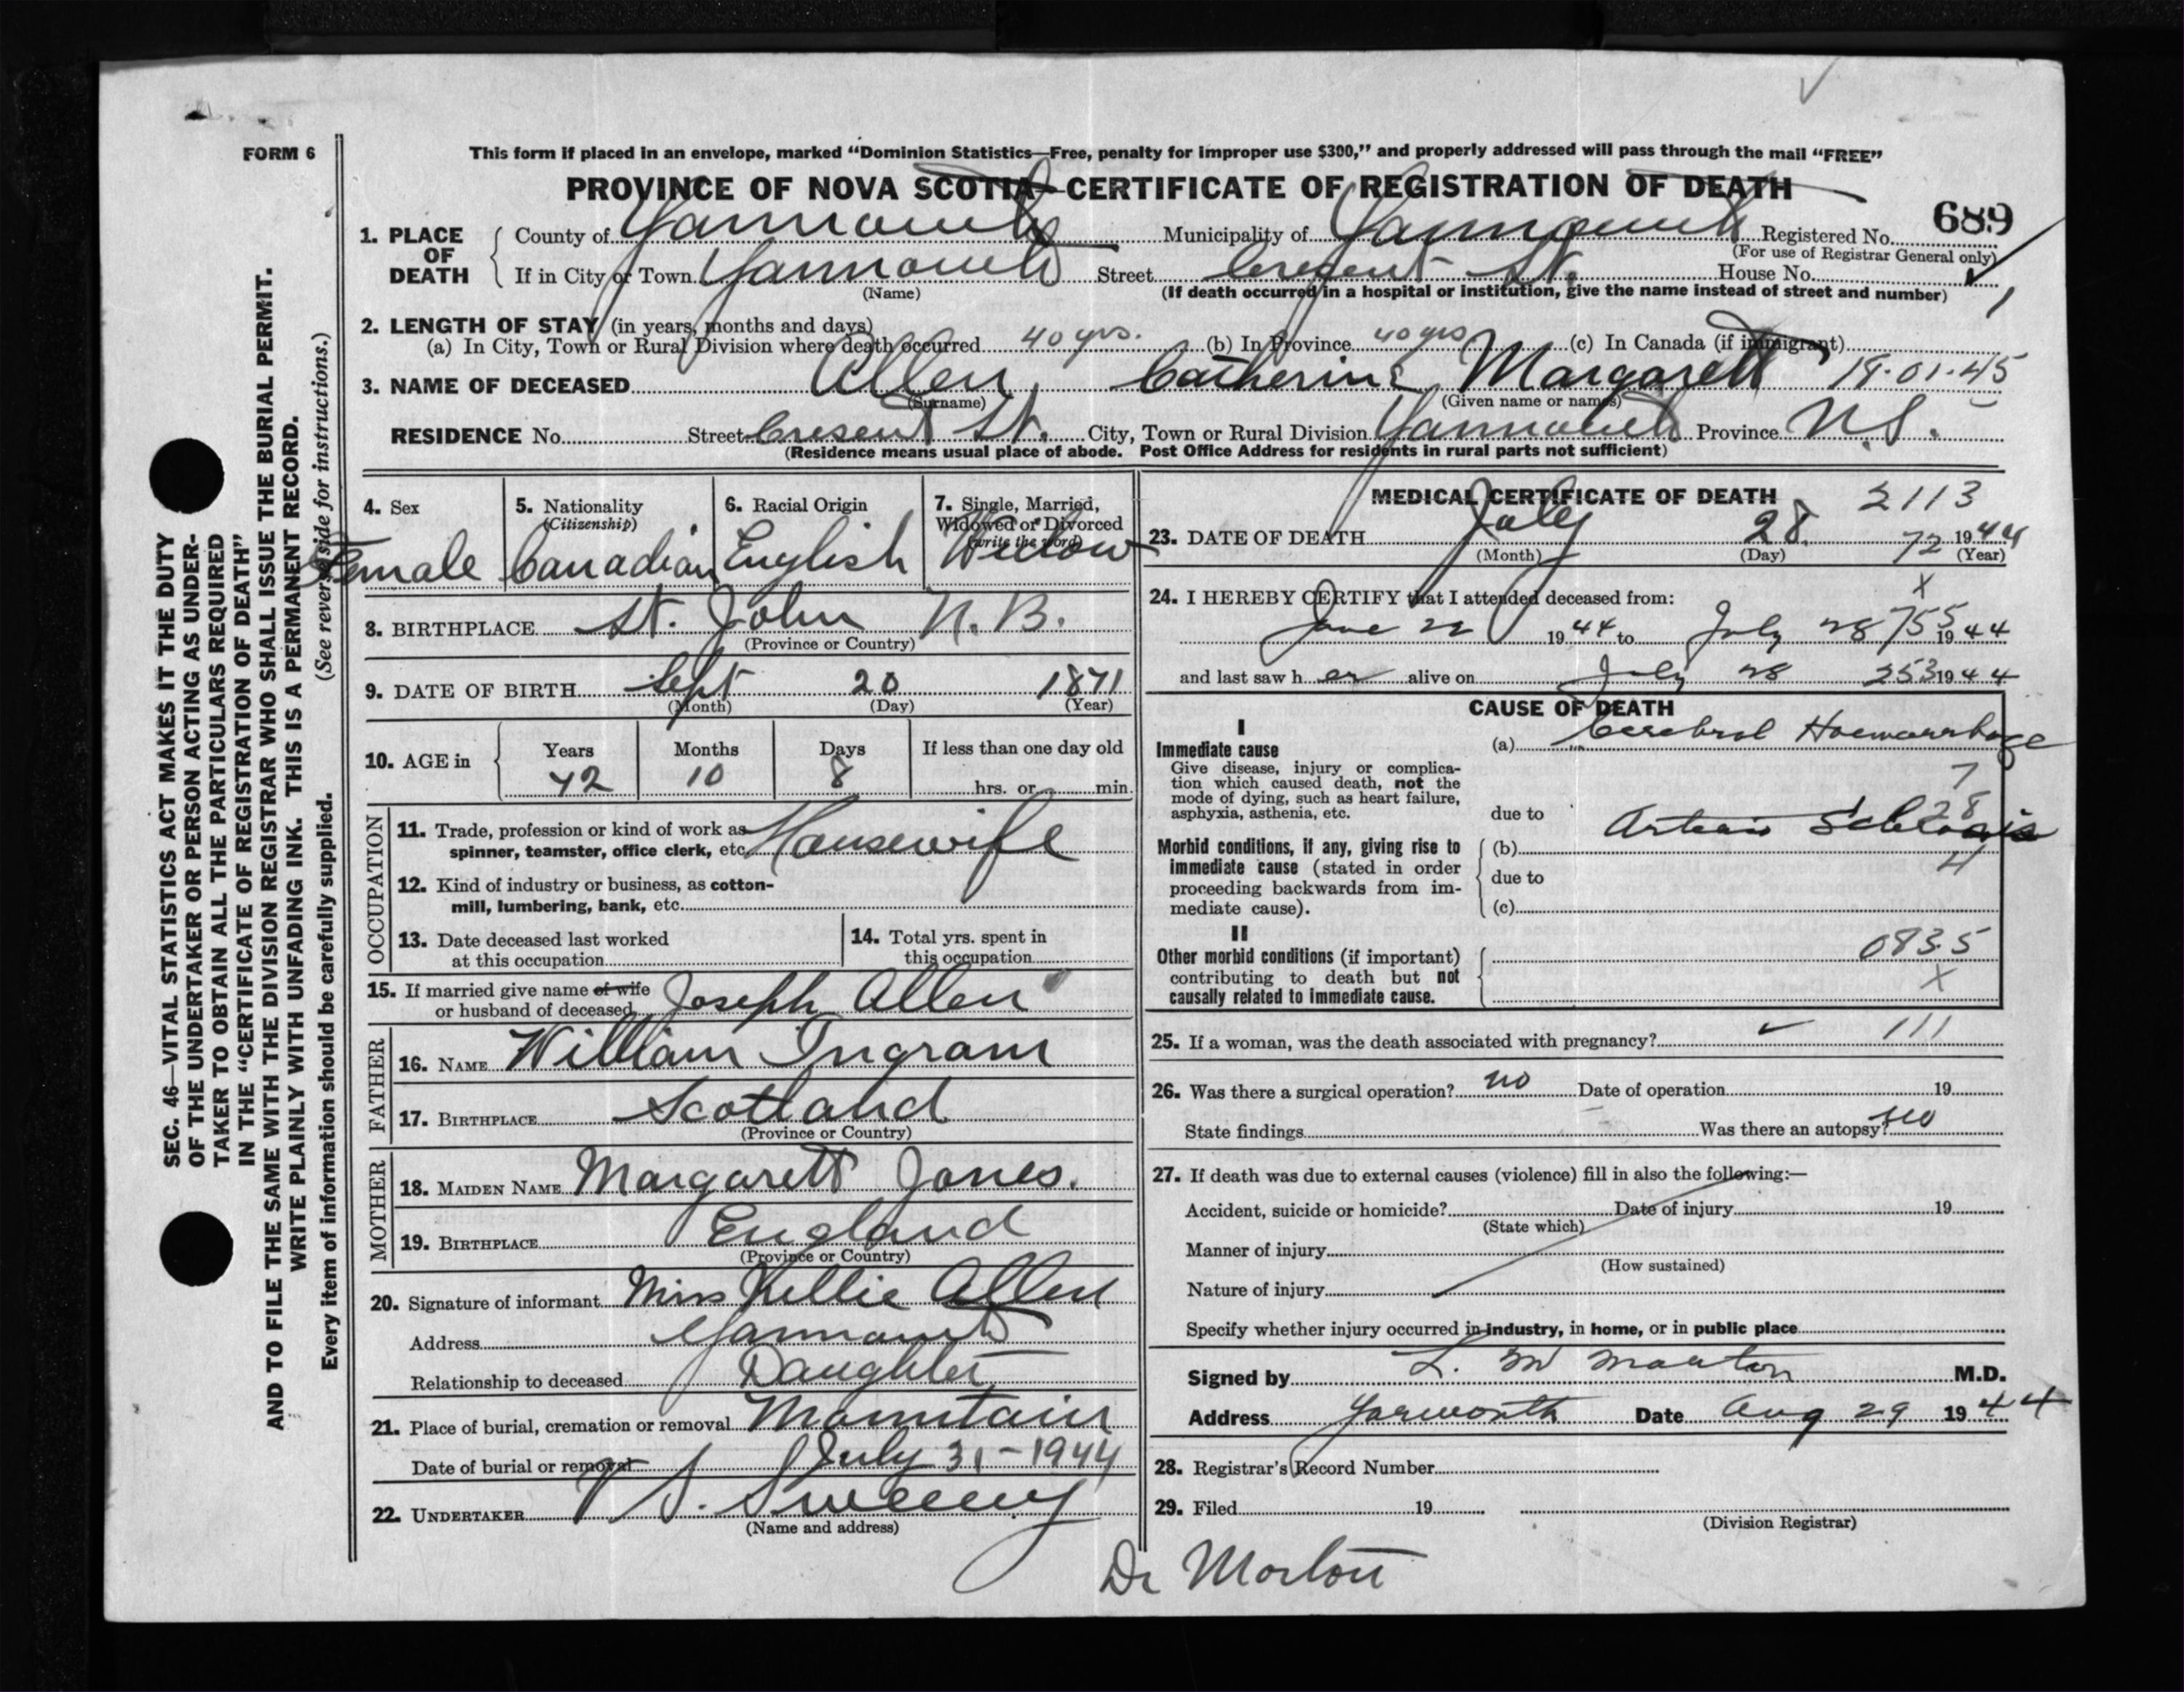 FORM 6
This form if placed in an envelope, marked “Dominion Statistics—Free, penalty for improper use $300,” and properly addressed will pass through the mail “FREE”
PROVINCE OF NOVA SCOTIA—CERTIFICATE OF REGISTRATION OF DEATH
689
1. PLACE OF DEATH
County of Yarmouth Municipality of Yarmouth Registered No.
(For use of Registrar General only)
If in City or Town Yarmouth Street Cresent St. House No.
(Name) (If death occurred in a hospital or institution, give the name instead of street and number)
2. LENGTH OF STAY (in years, months and days)
(a) In City, Town or Rural Division where death occurred 40 yrs. (b) In Province 40 yrs (c) In Canada (if immigrant)
3. NAME OF DECEASED Allen, Catherine Margarett 18.01.45
(Surname) (Given name or names)
RESIDENCE No. Street Cresent St. City, Town or Rural Division Yarmouth Province N.S.
(Residence means usual place of abode. Post Office Address for residents in rural parts not sufficient)
4. Sex
Female
5. Nationality
(Citizenship)
Canadian
6. Racial Origin
English
7. Single, Married,
Widowed or Divorced
(write the word)
Widow
8. BIRTHPLACE St. John N.B.
(Province or Country)
9. DATE OF BIRTH Sept 20 1871
(Month) (Day) (Year)
10. AGE in
Years Months Days If less than one day old
72 10 8 hrs. or min.
OCCUPATION
11. Trade, profession or kind of work as
spinner, teamster, office clerk, etc. Housewife
12. Kind of industry or business, as cotton-
mill, lumbering, bank, etc.
13. Date deceased last worked
at this occupation
14. Total yrs. spent in
this occupation
15. If married give name of wife
or husband of deceased Joseph Allen
FATHER
16. NAME William Ingram
17. BIRTHPLACE Scotland
(Province or Country)
MOTHER
18. MAIDEN NAME Margarett Jones.
19. BIRTHPLACE England
(Province or Country)
20. Signature of informant Miss Nellie Allen
Address Yarmouth
Relationship to deceased Daughter
21. Place of burial, cremation or removal Mountain
Date of burial or removal July 31-1944
22. UNDERTAKER V. S. Sweeny
(Name and address)
MEDICAL CERTIFICATE OF DEATH 2113
23. DATE OF DEATH July 28 1944
(Month) (Day) 72 (Year)
X
24. I HEREBY CERTIFY that I attended deceased from:
June 22 1944 to July 28 755 1944
and last saw her alive on July 28 253 1944
CAUSE OF DEATH
I
Immediate cause
Give disease, injury or complica-
tion which caused death, not the
mode of dying, such as heart failure,
asphyxia, asthenia, etc.
(a) Cerebral Haemorrhage
7
28
due to
Morbid conditions, if any, giving rise to
immediate cause (stated in order
proceeding backwards from im-
mediate cause).
(b)
4
due to
(c)
II
Other morbid conditions (if important)
contributing to death but not
causally related to immediate cause.
0835
X
25. If a woman, was the death associated with pregnancy? ✓ 111
26. Was there a surgical operation? no Date of operation 19
State findings Was there an autopsy? no
27. If death was due to external causes (violence) fill in also the following:—
Accident, suicide or homicide? Date of injury 19
(State which)
Manner of injury
(How sustained)
Nature of injury
Specify whether injury occurred in industry, in home, or in public place
Signed by L. M Morton M.D.
Address Yarmouth Date Aug 29 1944
28. Registrar's Record Number
29. Filed 19
(Division Registrar)
Dr Morton
SEC. 46—VITAL STATISTICS ACT MAKES IT THE DUTY
OF THE UNDERTAKER OR PERSON ACTING AS UNDER-
TAKER TO OBTAIN ALL THE PARTICULARS REQUIRED
IN THE “CERTIFICATE OF REGISTRATION OF DEATH”
AND TO FILE THE SAME WITH THE DIVISION REGISTRAR WHO SHALL ISSUE THE BURIAL PERMIT.
WRITE PLAINLY WITH UNFADING INK. THIS IS A PERMANENT RECORD.
Every item of information should be carefully supplied. (See reverse side for instructions.)